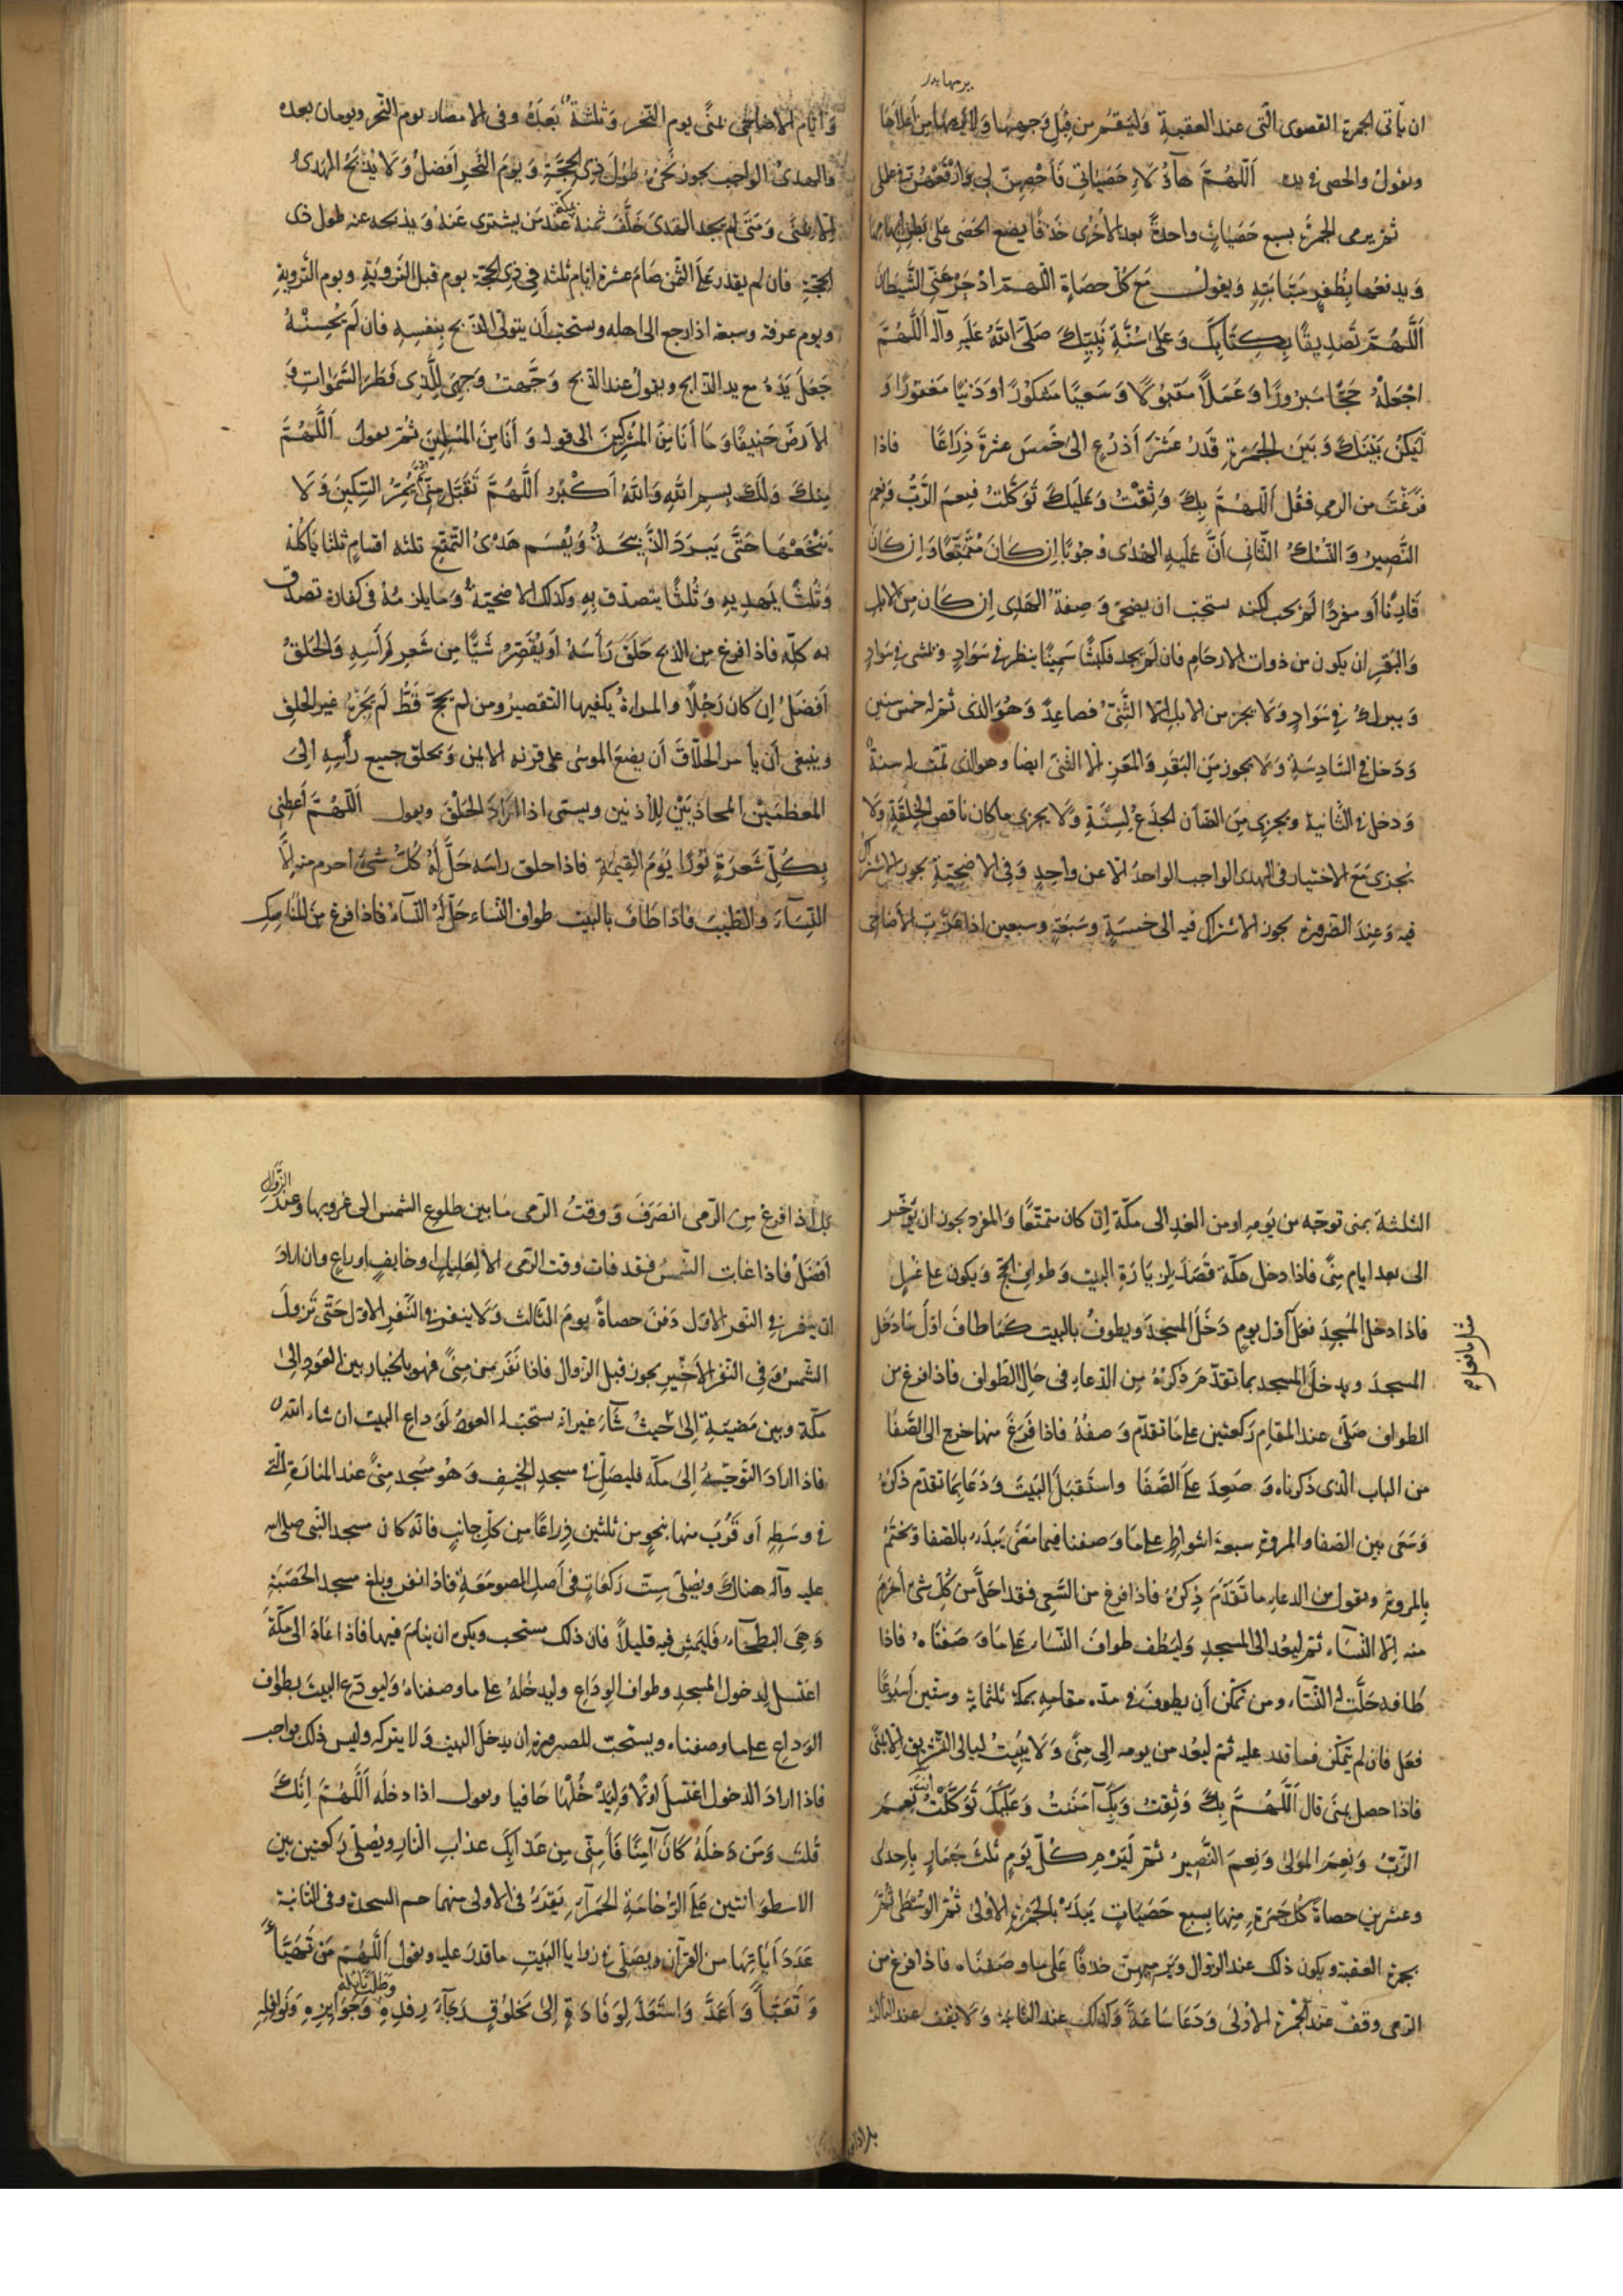 يرميها بدر
ان يأتى الجمرة القصوى الّتى عند العقبة وَليَقُم من قِبَلِ وَجهِهَا وَلا يرمها من أعلاها
ويقولُ والحصى فى يده اَللّهُمَّ هآؤُلَاءِ حَصَيَاتِى فَأَحْصِهِنَّ لِى وَارْفَعهُنَّ فى عملى
ثمّ يرمى الجمرةَ بسبع حَصَيَاتٍ واحدةً بعد الأخرى خَذفًا يضع الحَصَى عَلَى بَطنِ ابهامها
وَيدفعُها بِظُفرِ سَبَّابَتِهِ وَيقولُ مَعَ كُلّ حصَاةٍ اللّهمّ ادْحَرْ عَنِّى الشَّيطَانَ
اَللَّهُمَّ تَصْدِيقًا بِكِتَابِكَ وَعَلى سُنَّةِ نَبِيِّكَ صَلَّى اللهُ عَلَيهِ وآله اَللَّهُمَّ
اجْعَلْهُ حَجًّا مَبْرُورًا وَعَمَلًا مَقبُولًا وَسَعيًا مَشكُورًا وَذَنبًا مَغفورًا وَ
لَيَكُنْ بَيْنَكَ وَبَينَ الجَمرَةِ قَدَرُ عَشرَ أَذرُعِ الى خَمسَ عشرةَ ذِرَاعًا فاذا
فَرَغْتَ من الرمى فقُل اَللّهُمَّ بِكَ وَثِقْتُ وَعَلَيكَ تَوَكَّلتُ فنِعمَ الرَّبُّ وَنِعمَ
النَّصِيرُ وَالنُّسُكُ الثّانِى اَنَّ عَلَيهِ الهَدْىَ وُجُوبًا اِن كَانَ مُتَمَتِّعًا وَاِن كَانَ
قَارِنًا أو مفردًا لَم يجب لكنه يستحبّ ان يضحى وَصِفَةُ الهَدىِ اِن كَان مِن الابل
وَالبَقَرِ ان يكون من ذوات الارحَامِ فان لَم يَجد فكبشًا سَمِينًا ينظر فى سَوَادٍ ويمشى فى سَوَادٍ
وَيبرك فى سَوَادٍ وَلَا يجوز من الابل الّا الثَّنىُّ فصاعِدًا وَهُوَ الذى تمّ له خمس سنين
وَدَخلَ فى السَّادِسَةِ وَلَا يجوز مِنَ البَقَرِ وَالمَعَزِ الّا الثنىّ ايضا وهو الذى تمّت له سنةٌ
وَدخلَ فى الثّانية ويجزى مِنَ الضّان الجذَعُ لِسَنَةٍ وَلَا يجزى ما كان ناقص الخِلقَةِ وَلَا
يُجزى مَعَ الاختيار فى الهدى الواجب الواحدُ الّا عن واحدٍ وَفِى الاضحِيّةِ يجوز الاشتراك
فيه وَعِندَ الضّرورة يجوز الاشتراك فيه الى خمسَةٍ وسَبعَةٍ وسبعين اذا عَزَّتِ الأضاحى
وَايّام الاضاحِى بمنًى يوم النّحر وَثلثةٌ بَعدَهُ وفى الامصَارِ يوم النّحر ويومان بعده
وَالهَدىُ الواجب يجوز نَحْرُهُ طُولَ ذِى الحِجّةِ وَيومَ النَّحرِ اَفضَلُ وَلَا يُذْبَحُ الهَدىُ
الّا بمِنًى وَمَتَى لم يجد الهَدىَ خَلَّفَ ثمنهُ بمكة عِنْدَ مَن يشترى عَنهُ وَيذبحه عنه طول ذى
الحجّةِ فان لم يقدر عَلَى الثّمن صَامَ عشرة ايّام ثلثه فِى ذِى الحجّة يوم قبل التّرويَةِ ويوم التّرويةِ
ويوم عرفة وسبعة اذا رجع الى اهله ويستحبّ أن يتولّى الذّبح بِنفسِهِ فان لَم يُحْسِنْهُ
جَعَلَ يَدَهُ مع يد الذّابح ويقولُ عند الذّبح وَجَّهتُ وَجهِىَ لِلَّذِى فَطَرَ السَّمَوَاتِ وَ
الاَرضَ حَنِيفًا وَمَا اَنَا مِنَ المُشرِكِينَ الى قوله وَ اَنَا مِنَ المُسلمينَ ثُمّ يقولُ اَللَّهُمَّ
مِنكَ وَلَكَ بِسمِ اللهِ وَاللهُ اَكبَرُ اَللَّهُمَّ تَقَبَّل مِنِّى ثُمَّ يُمِرُّ السِّكِينَ وَلَا
يَنْخَعْهَا حَتَّى يَبرَدَ الذَّبِيحَةُ وَيُقْسَم هَدْىُ التَّمَتّع ثلثه اقسامٍ ثلثا يَاكُلهُ
وَثُلثًا يُهدِيهِ وَثُلثًا يتصدّق بِهِ وكذلك الاضحيّةُ وَمَا يلزمُهُ فى كفّارة تصدّق
به كلّه فاذا فرغ من الذبح حَلَقَ رَأسَهُ اَو يُقَصِّرُ شَيئًا مِن شَعرِ رَأسِهِ وَالحَلقُ
اَفضَلُ اِن كَانَ رَجُلًا والمراةُ يكفيها التّقصيرُ ومن لم يحجّ قَطُّ لم يَجزهُ غير الحلقِ
وينبغى أن يأمر الحلّاقَ أن يضعَ الموسى على قرنه الايمن وَيحلق جميع رأسِهِ الىَ
العَظمَيْنِ المحَاذِيَيْنِ لِلأذنين ويسمّى اذا ارَادَ الحَلْقَ ويقول اَللّهُمَّ اَعْطِنِى
بِكُلِّ شَعرَةٍ نُورًا يَومَ القِيمَةِ فاذا حلق راسَه حَلَّ لَهُ كُلُّ شَىءٍ احرم منه اِلَّا
النِّسَآءَ والطّيبَ فاذا طَافَ بالبيت طواف النّساء حَلّ لَهُ النّسَآءُ فاذا فرغ من المناسِكِ
الثلثة بمنى توجّه من يَومِهِ او من الغدِ الى مكّة اِن كان متمتّعًا وَالمفرد يجوز ان يؤخّر
الى بعد ايام مِنًى فاذا دخل مكّة قَصَدَ لزِيَارَةِ البيت وَطوافِ الحجّ وَيكون على غُسلٍ
فاذا دخل المَسْجِدَ فعل كاوّل يومٍ دَخَلَ المسجدَ ويطوفُ بالبيت كما طافَ اوّلَ مَا دَخَل
المسجدَ ويدخل المسجد بما تقدّمَ ذكرُهُ مِنَ الدّعاءِ فى حَالِ الطّواف فاذا فرغ من
الطواف صَلّى عند المقامِ رَكعتين على ما تقدّم وَصفهُ فاذا فَرَغَ منها خرج الى الصَّفَا
من الباب الذى ذكرناه وَ صَعِدَ عَلَى الصَّفَا واستَقبَلَ البَيتَ وَدَعَا بِمَا تقدّم ذكرُهُ
وَسَعى بين الصّفا والمروة سبعةَ اشواطٍ على ما وَصفنا فيما مَضَى يَبدَء بالصّفا وَيختمُ
بِالمروةِ ويقول من الدعاء ما تَقَدَّمَ ذِكرُهُ فاذا فرغ من السّعى فقد احلّ من كُلّ شىءٍ أحرَمَ
منه اِلّا النّسَاءَ ثمّ ليعُد الى المسجدِ وَليَطُف طوافَ النّسَاءِ عَلَى مَا وَصَفنَاهُ فاذا
طَافه حَلَّت له النّسَآء ومن تمكّن أن يطوفَ فى مدّة مقامِهِ بمكّة ثلثماية وستّين أسبُوعًا
فعل فان لم يتمكّن فما قدر عليه ثم ليعُد من يومه الى مِنًى وَلَا يبيتُ ليالى التّشريق الّا بمنًى
فاذا حصل بمنًى قال اَللَّهُمَّ بِكَ وَثِقتُ وَبِكَ آمَنتُ وَعَلَيكَ تَوَكَّلْتُ اَنتَ نِعمَ
الرَّبُّ وَنِعمَ المَولى وَنِعمَ النَّصِيرُ ثمّ لَيَرمِ كُلّ يَومٍ ثلثَ جَمارٍ بِاحدى
وعشرينَ حصاةً كُلّ جَمرَةٍ مِنهَا بِسبعِ حَصَيَاتٍ يَبدَءُ بالجَمرَةِ الاُولى ثُمّ الوُسطى ثُمّ
بجمرة العقبة ويكون ذلك عند الزّوال وَيرميهِنّ خَذفًا عَلَى ما وصَفنَاه فاذا فرغ من
الرّمى وقف عندَ الجَمْرَةِ الأولى وَدَعَا سَاعَةً وَكَذلك عند الثّانية وَلَا يقف عند الثّالثة
بل اذا فرغ من الرّمى انصَرَفَ وَوقتُ الرّمى مَا بين طلوعِ الشّمس الى غروبها وَعند الزَّوالِ
اَفضَلُ فاذا غابت الشّمس فقد فات وقت الرّمى الّا لِعَليلٍ او خايفٍ او راعٍ وان ارادَ
ان ينفر فى النّفر الاوّل دَفنَ حصاةَ يومَ الثّالث وَلَا ينفر فى النَّفرِ الاوّل حَتّى تَزولَ
الشّمسُ وَفِى النّفر الأخِيرِ يجوز قبل الزّوال فاذا نَفَرَ من مِنًى فهو بالخيار بين العَودِ الى
مكّة وبين مَضِيّةِ اِلَى حَيثُ شَآءَ غير انّه يستحبّ له العَودُ لِوَداعِ البيت ان شاء الله
فاذا ارادَ التّوجّهَ اِلى مكّه فليصَلّ فى مسجدِ الخَيفِ وَهُو مسجد مِنًى عند المنارَةِ الّتى
فى وسَطِهِ أو قَرُبَ منها بنحوٍ من ثلثين ذِرَاعًا مِن كلّ جانبٍ فانّه كان مسجد النّبى صلى الله
عليه وآله هناكَ ويصَلّى سِتّ رَكعَاتٍ فى أصلِ الصّومَعَةِ فاذا نفر وبلغ مسجد الحَصبَةِ
وَهِىَ البَطحَآءُ فَليَمشِ فِيهِ قليلًا فان ذلك مستحب ويكره ان ينامَ فيها فاذا عَادَ الى مكّةَ
اغتسل لِدخول المسجدِ وطواف الوِدَاعِ وليدخُلهُ على ما وصفناهُ وَليودّع البيتَ بطواف
الوِدَاعِ على ما وصفناه ويستحبّ للصرورة ان يدخلَ البيت وَلَا يتركه وليس ذلك بواجب
فاذا ارادَ الدخول اغتسلَ اوّلًا وَليَدْخُلْهَا حَافيا ويقول اذا دخله اَللَّهُمَّ اِنَّكَ
قُلتَ وَمَن دَخَلَهُ كَانَ آمِنًا فَآمِنِّى مِن عَذَابِكَ عذابِ النّارِ ويُصَلّى رَكعتين بين
الاسطوَانتين عَلَى الرّخامَةِ الحَمرَآءِ يَقرَءُ فى الاولى منهما حم السجدة وفى الثانية
عَدَدَ آياتِهَا من القرآن وَيصَلّى فى زوايا البَيتِ ما قدرَ عليه ويقول اَللَّهُمَّ مَن تَهَيَّأ
وَتَعَبَّأ وَأعَدَّ وَاستَعَدَّ لِوِفَادَةٍ اِلى مَخلُوقٍ رَجَآءَ رِفدِهِ وَطَلَبَ نَايِلِهِ وَجَوَايِزِهِ وَنَوَافِلِهِ